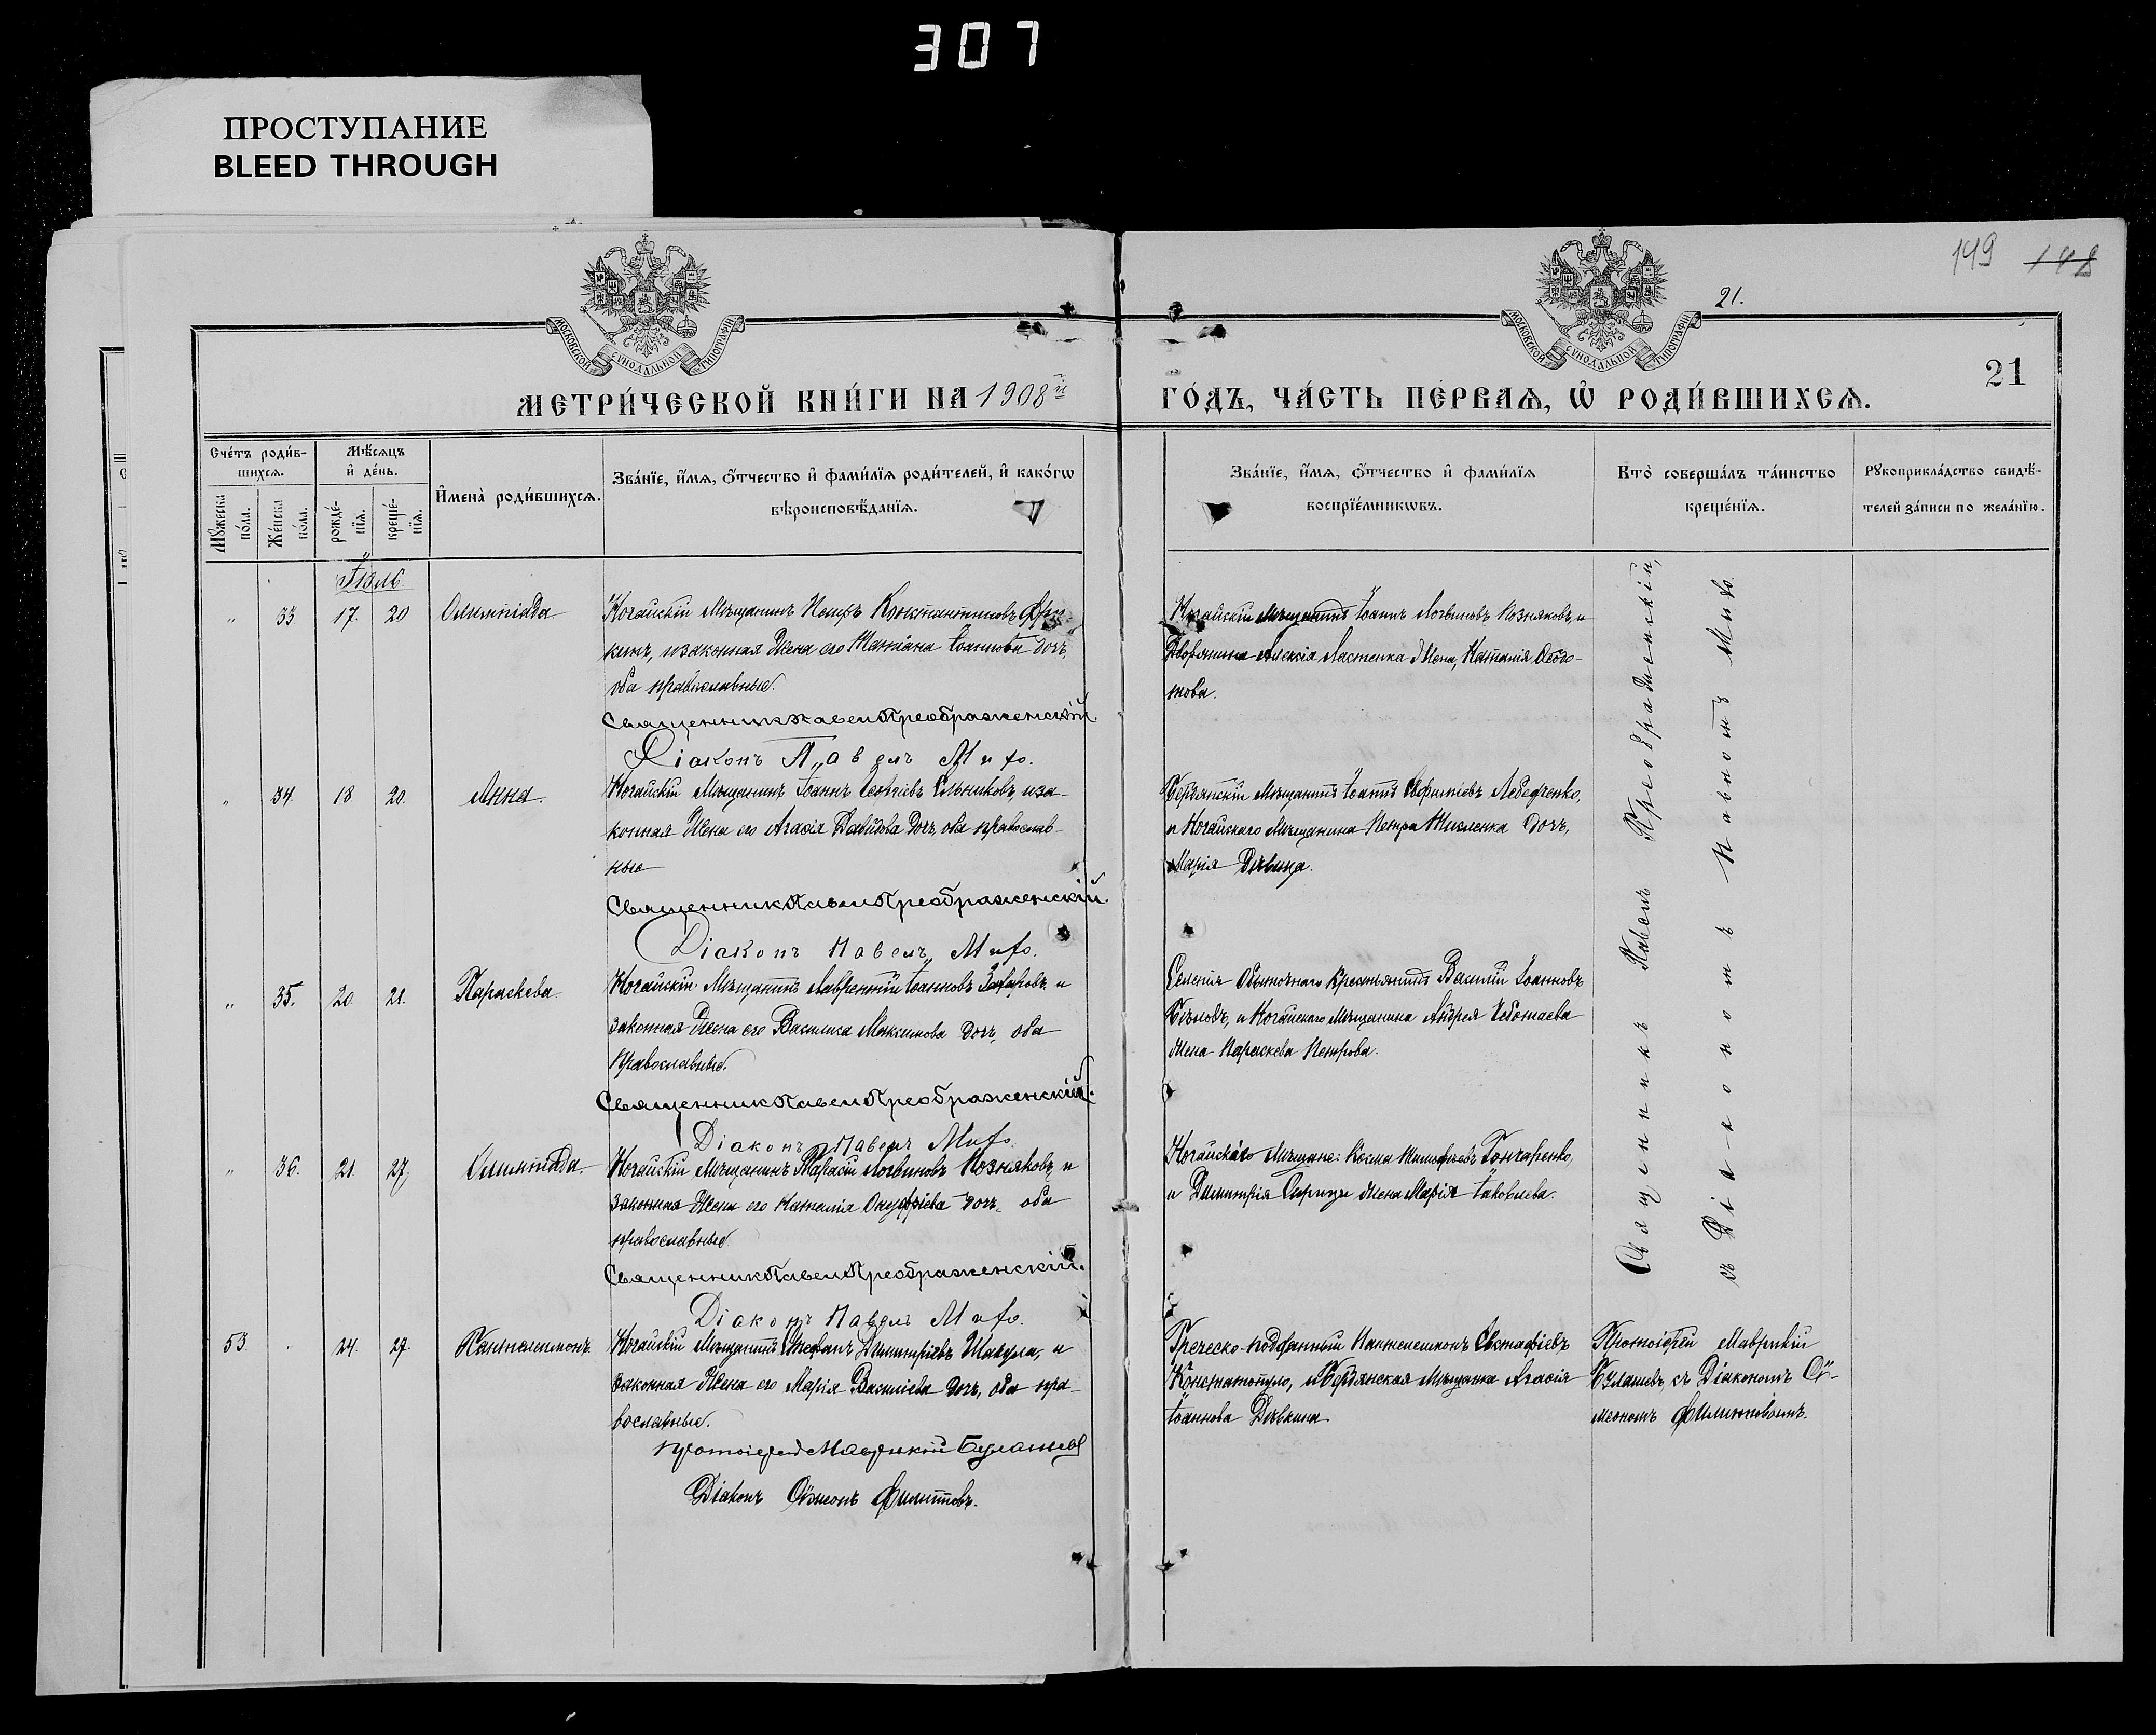 307
ПРОСТУПАНИЕ
BLEED THROUGH
149 148
21.
МОСКОВСКОЙ СѴНОДАЛЬНОЙ ТИПОГРАФІИ
МОСКОВСКОЙ СѴНОДАЛЬНОЙ ТИПОГРАФІИ
21
МЕТРИ́ЧЕСКОЙ КНИ́ГИ НА 1908й
ГО́ДЪ, ЧА́СТЬ ПЕ́РВАѦ, Ѡ҆ РОДИ́ВШИХСѦ.
Сче́тъ роди́в-
шихсѧ.
Мꙋ́жеска по́ла.
Же́нска по́ла.
Мѣ́сѧцъ
и҆ де́нь.
рожде́-
нїѧ.
креще́-
нїѧ.
И҆мена̀ роди́вшихсѧ.
Зва́нїе, и҆́мѧ, ѻ҆́тчество и҆ фами́лїѧ роди́телей, и҆ како́гѡ
вѣроисповѣ́данїѧ.
Зва́нїе, и҆́мѧ, ѻ҆́тчество и҆ фами́лїѧ
воспрїе́мникѡвъ.
Кто̀ соверша́лъ та́инство
креще́нїѧ.
Рꙋкоприкла́дство свидѣ́-
телей за́писи по жела́нїю.
Іюль.
" 33. 17. 20 Олимпіада
Ногайскій Мѣщанинъ Петръ Константиновъ
кинъ, и законная Жена его Татіана Іоаннова дочь,
оба православные.
Священникъ Павелъ Преображенскій.
Діаконъ Павелъ
Ногайскій Мѣщанинъ Іоаннъ Логвиновъ Позняковъ, и
Дворянина Алексія Ластенка Жена, Наталія
нова.
" 34. 18. 20. Анна.
Ногайскій Мѣщанинъ Іоаннъ Георгіевъ и за-
конная Жена его Агафія Давидова дочь, оба православ-
ные
Священникъ Павелъ Преображенскій.
Діаконъ Павелъ
Бердянскій Мѣщанинъ Іоаннъ Лебедченко,
и Ногайскаго Мѣщанина Петра дочь,
Марія Дѣвица.
" 35. 20. 21. Параскева
Ногайскій Мѣщанинъ Лаврентій Іоанновъ Захаровъ и
законная Жена его Василиса Максимова дочь, оба
Православные.
Священникъ Павелъ Преображенскій.
Діаконъ Павелъ
Селенія Обыточнаго Крестьянинъ Василій Іоанновъ
и Ногайскаго Мѣщанина Андрея Чеботаева
Жена Параскева Петрова.
" 36. 21. 27. Олимпіада.
Ногайскій Мѣщанинъ Тарасій Логвиновъ Позняковъ, и
законная Жена его Наталія Онуфріева дочь, оба
православные
Священникъ Павелъ Преображенскій.
Діаконъ Павелъ
Ногайскаго Мѣщане: Косма Гончаренко,
и Димитрія Жена Марія Іаковлева.
Священникъ Павелъ Преображенскій,
съ Діакономъ Павломъ
53 24. 27. Пантелеимонъ.
Ногайскій Мѣщанинъ Стефанъ Димитріевъ Шакула, и
законная Жена его Марія Василіева дочь, оба пра-
вославные.
Протоіерей Маврикій Булашевъ
Діаконъ Сѵмеонъ Филипповъ.
Греческо-подданный Пантелеимонъ Евстафіевъ
Константопуло, и Бердянская Мѣщанка Агафія
Іоаннова Дѣвкина.
Протоіерей Маврикій
Булашевъ, съ Діакономъ Сѵ-
меономъ Филипповымъ.